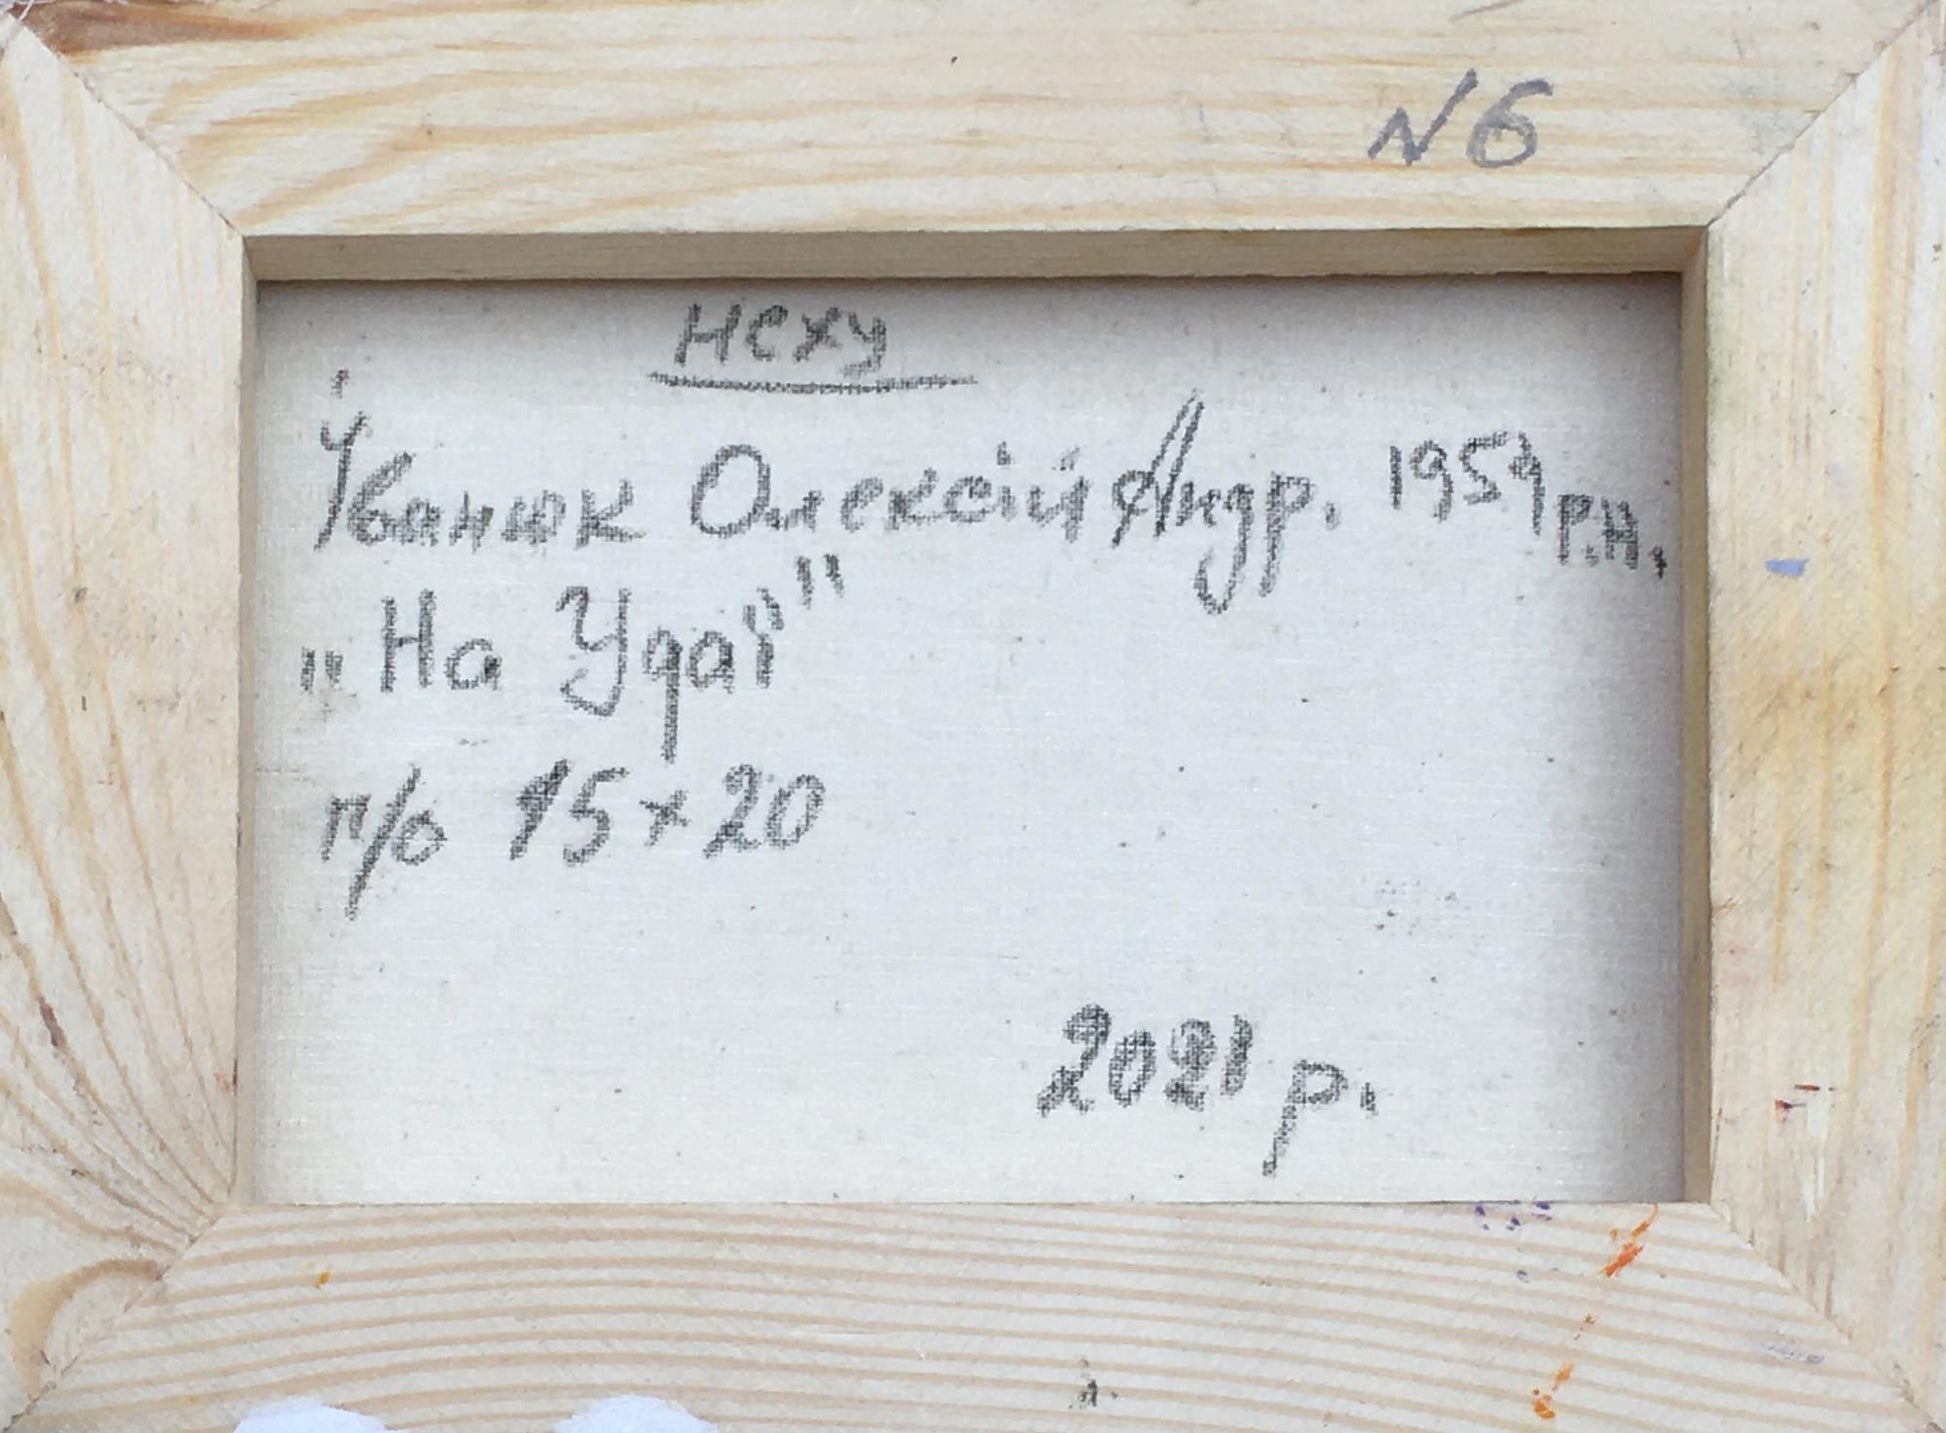 N6
НСХУ
Іванюк Олексій Андр. 1959 р.н.
„На Удаї"
п/о 15×20
2021 р.